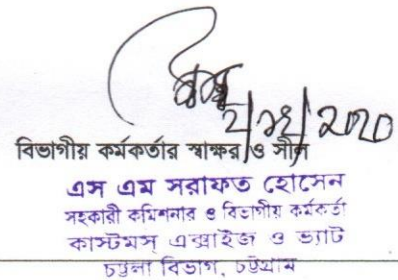 বিভাগীয় কর্মকর্তার স্বাক্ষর ও সীল
এস এম সরাফত হোসেন
সহকারী কমিশনার ও বিভাগীয় কর্মকর্তা
কাস্টমস্ এক্সাইজ ও ভ্যাট
চট্টলা বিভাগ, চট্টগ্রাম